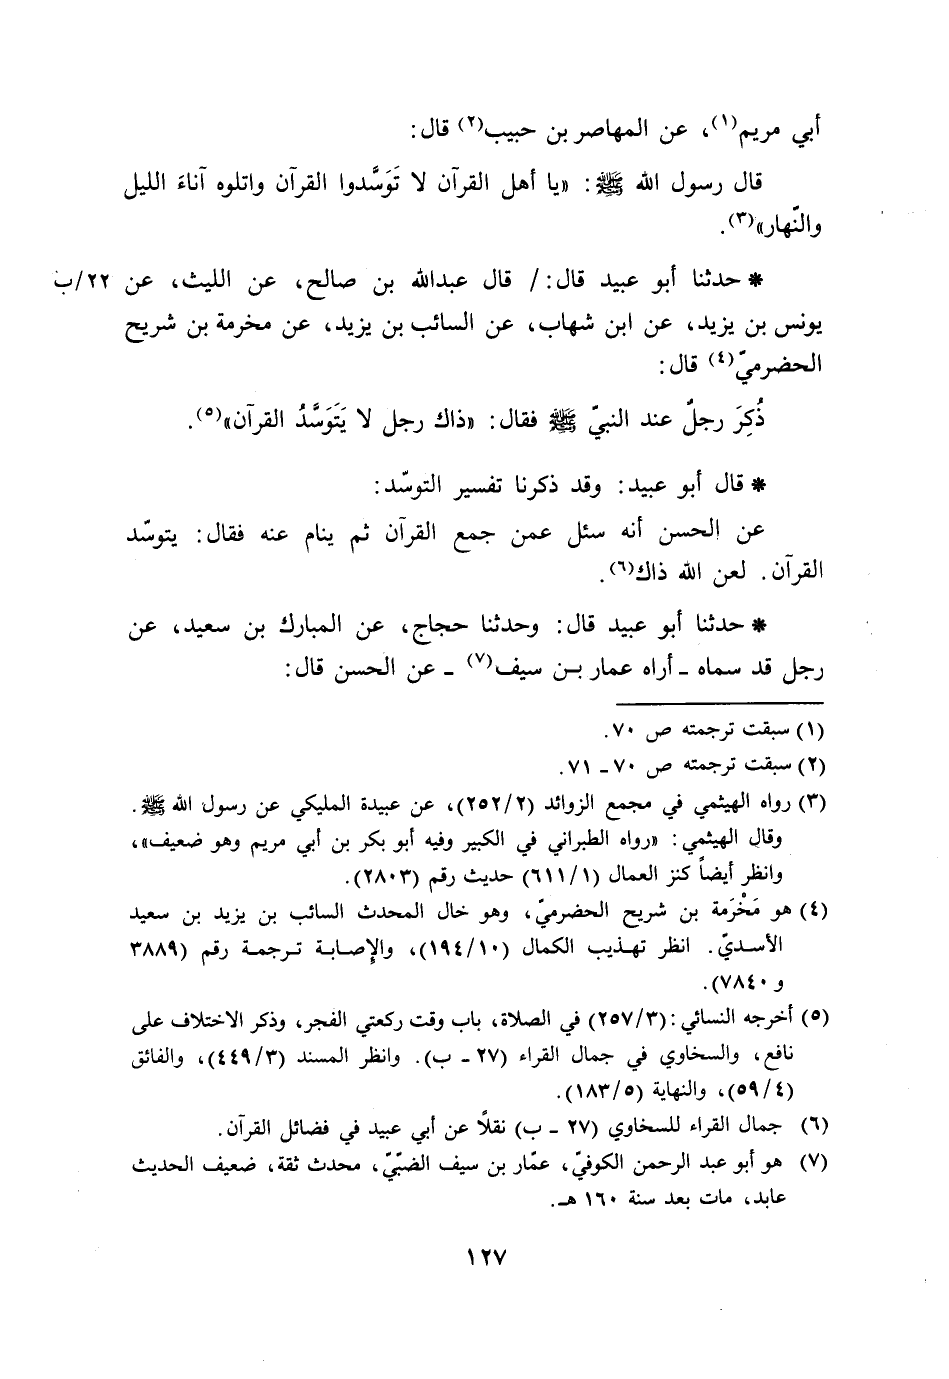 أبي مريم(١)، عن المهاصر بن حبيب(٢) قال:
قال رسول الله ﷺ: «يا أهل القرآن لا تَوَسَّدوا القرآن واتلوه آناءَ الليل
والنّهار»(٣).
* حدثنا أبو عبيد قال:/ قال عبدالله بن صالح، عن الليث، عن ٢٢/ب
يونس بن يزيد، عن ابن شهاب، عن السائب بن يزيد، عن مخرمة بن شريح
الحضرميّ(٤) قال:
ذُكِرَ رجلٌ عند النبيّ ﷺ فقال: «ذاك رجل لا يَتَوَسَّدُ القرآن»(٥).
* قال أبو عبيد: وقد ذكرنا تفسير التوسّد:
عن الحسن أنه سئل عمن جمع القرآن ثم ينام عنه فقال: يتوسّد
القرآن. لعن الله ذاك(٦).
* حدثنا أبو عبيد قال: وحدثنا حجاج، عن المبارك بن سعيد، عن
رجل قد سماه ـ أراه عمار بـن سيف(٧) ـ عن الحسن قال:
(١) سبقت ترجمته ص ٧٠.
(٢) سبقت ترجمته ص ٧٠ ـ ٧١.
(٣) رواه الهيثمي في مجمع الزوائد (٢٥٢/٢)، عن عبيدة المليكي عن رسول الله ﷺ.
وقال الهيثمي: «رواه الطبراني في الكبير وفيه أبو بكر بن أبي مريم وهو ضعيف»،
وانظر أيضاً كنز العمال (٦١١/١) حديث رقم (٢٨٠٣).
(٤) هو مَخْرَمة بن شريح الحضرميّ، وهو خال المحدث السائب بن يزيد بن سعيد
الأسـديّ. انظر تهـذيب الكمال (١٩٤/١٠)، والإصـابـة تـرجمـة رقم (٣٨٨٩
و ٧٨٤٠).
(٥) أخرجه النسائي: (٢٥٧/٣) في الصلاة، باب وقت ركعتي الفجر، وذكر الاختلاف على
نافع، والسخاوي في جمال القراء (٢٧ ـ ب). وانظر المسند (٤٤٩/٣)، والفائق
(٥٩/٤)، والنهاية (١٨٣/٥).
(٦) جمال القراء للسخاوي (٢٧ ـ ب) نقلًا عن أبي عبيد في فضائل القرآن.
(٧) هو أبو عبد الرحمن الكوفيّ، عمّار بن سيف الضبّيّ، محدث ثقة، ضعيف الحديث
عابد، مات بعد سنة ١٦٠ هـ.
١٢٧